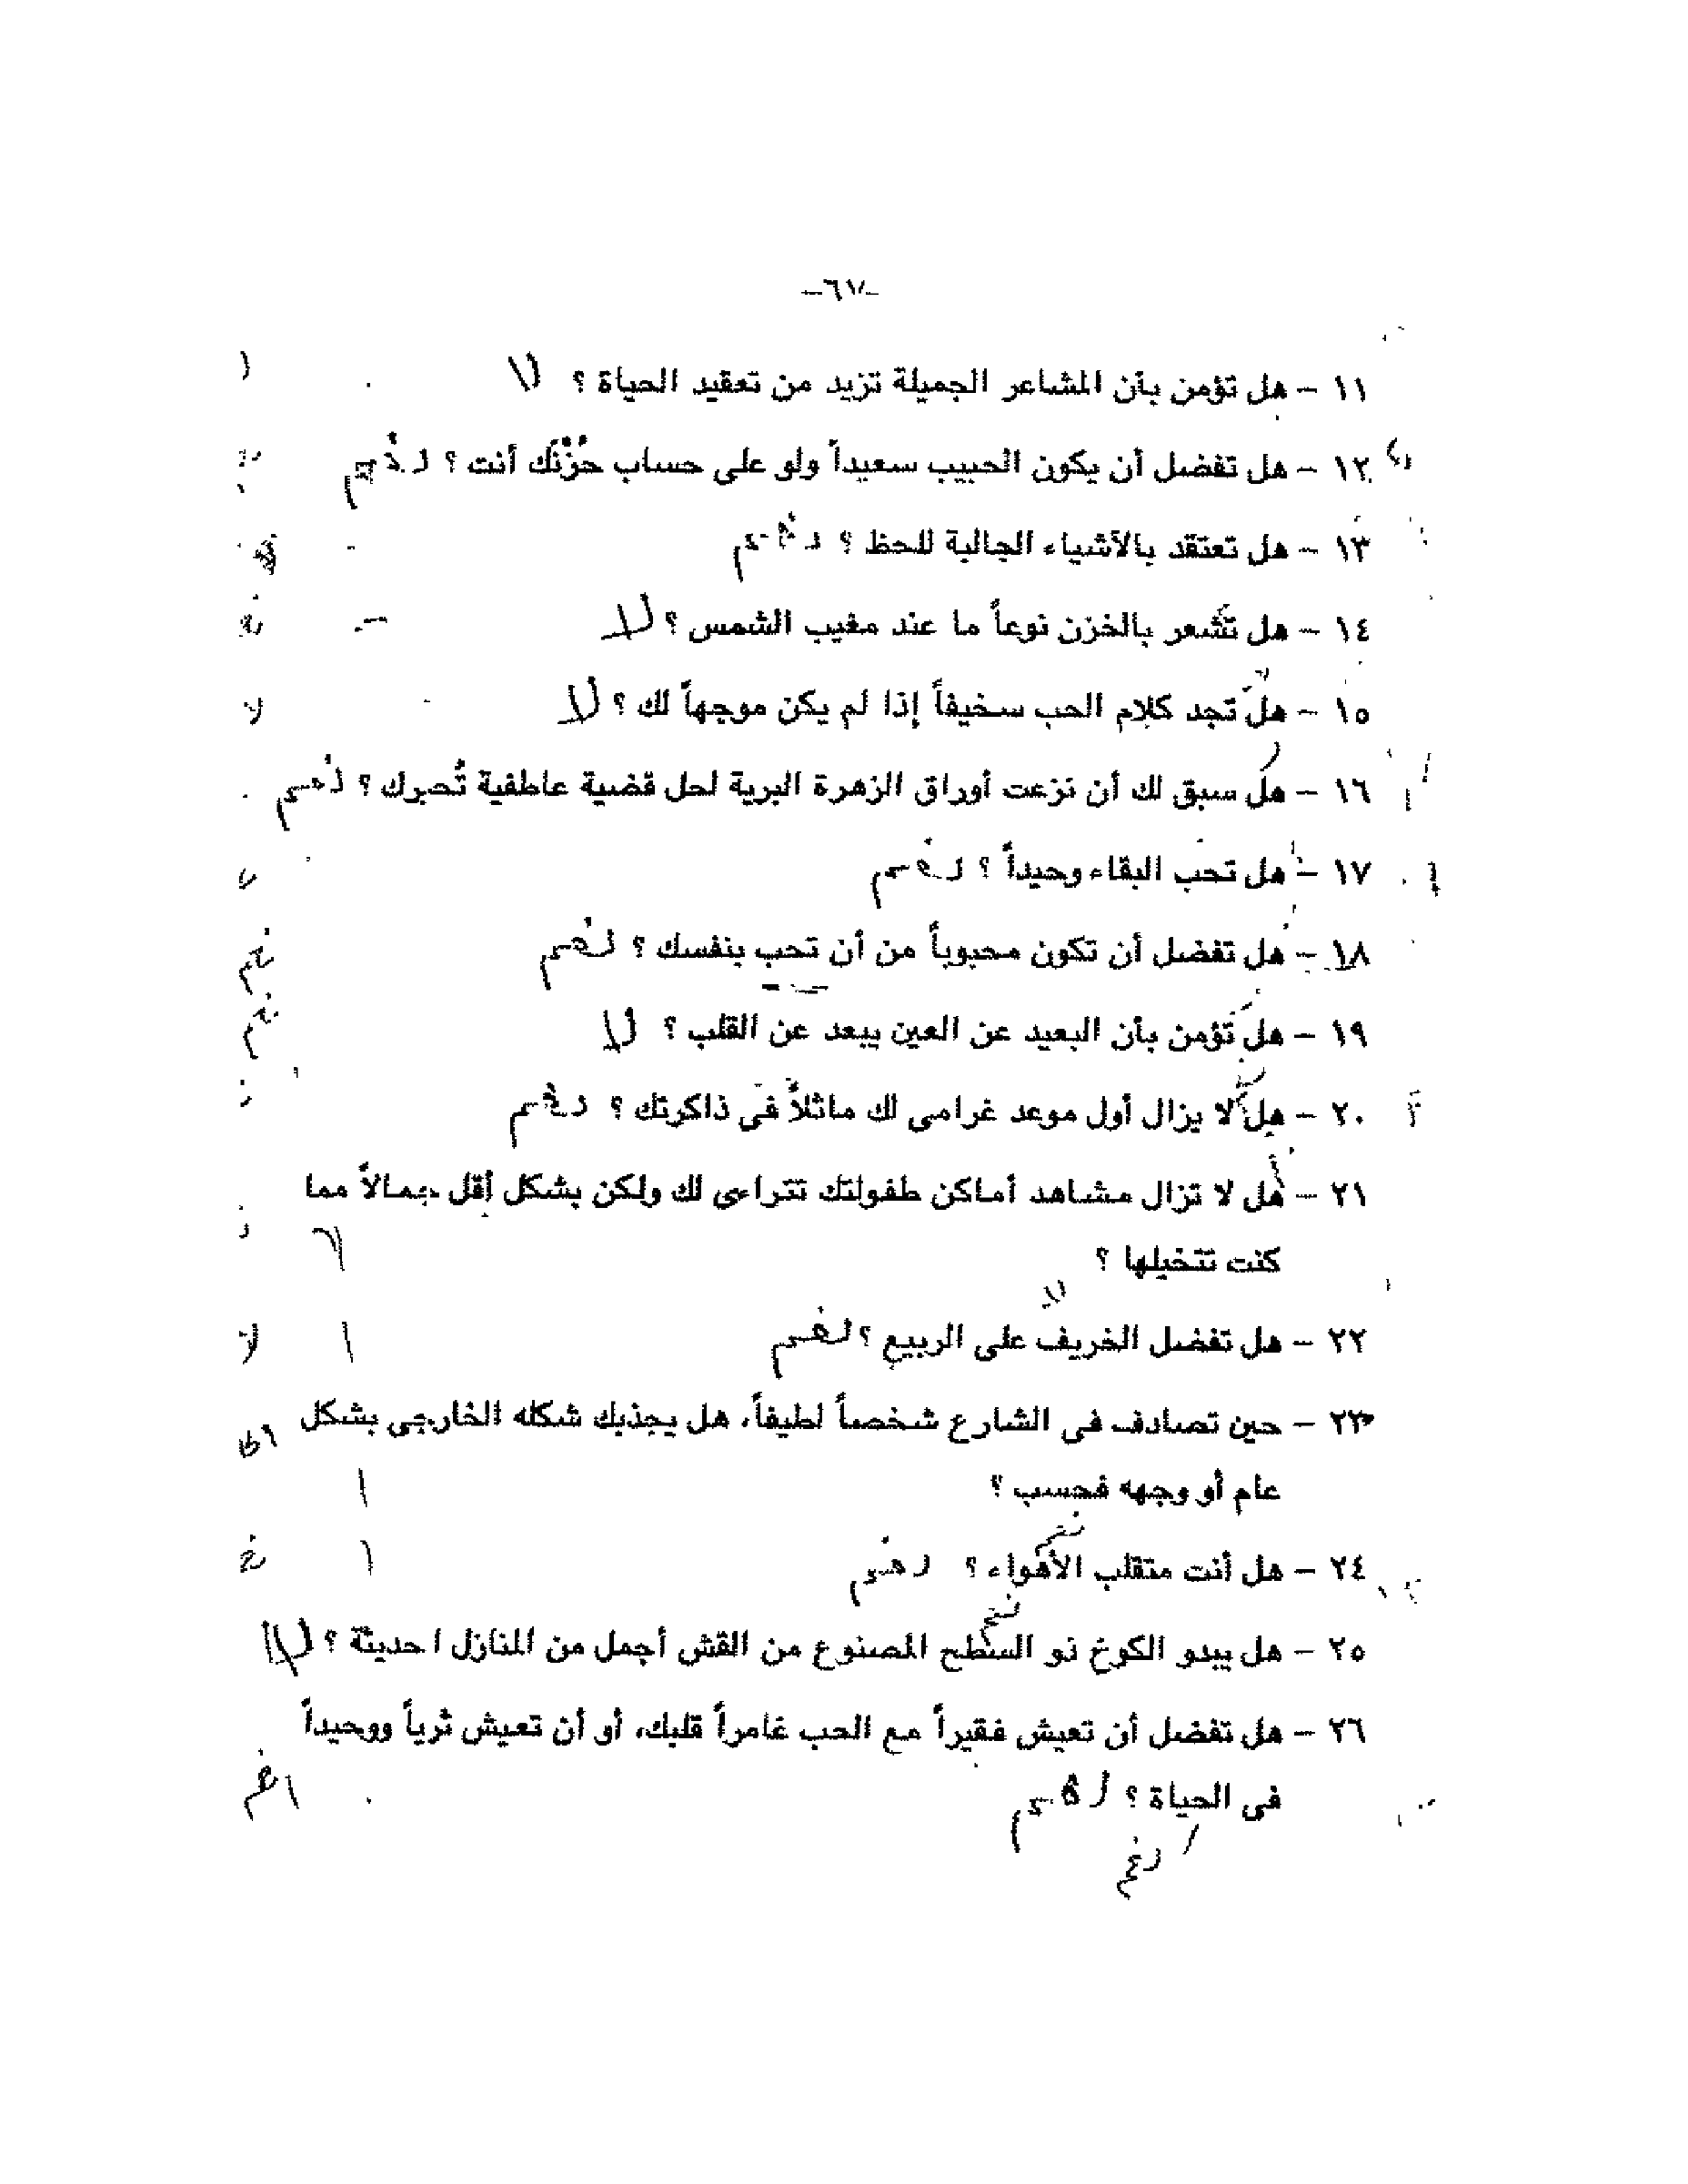 -٦٧-
١١ - هل تؤمن بأن المشاعر الجميلة تزيد من تعقيد الحياة ؟ لا
١٢ - هل تفضل أن يكون الحبيب سعيداً ولو على حساب حُزْنك أنت ؟ نعم
١٣ - هل تعتقد بالأشياء الجالبة للحظ ؟ نعم
١٤ - هل تشعر بالخزن نوعاً ما عند مغيب الشمس ؟ لا
لا ١٥ - هل تجد كلام الحب سخيفاً إذا لم يكن موجهاً لك ؟ لا
١٦ - هل سبق لك أن نزعت أوراق الزهرة البرية لحل قضية عاطفية تُحيرك ؟ نعم
١٧ - هل تحب البقاء وحيداً ؟ نعم
١٨ - هل تفضل أن تكون محبوباً من أن تحب بنفسك ؟ نعم نعم
١٩ - هل تؤمن بأن البعيد عن العين يبعد عن القلب ؟ لا نعم
٢٠ - هل لا يزال أول موعد غرامى لك ماثلاً فى ذاكرتك ؟ نعم
٢١ - هل لا تزال مشاهد أماكن طفولتك تتراءى لك ولكن بشكل أقل جمالاً مما
كنت تتخيلها ؟
لا
٢٢ - هل تفضل الخريف على الربيع ؟ نعم لا
٢٣ - حين تصادف فى الشارع شخصاً لطيفاً، هل يجذبك شكله الخارجى بشكل
عام أو وجهه فحسب ؟
نعم
٢٤ - هل أنت متقلب الأهواء ؟ نعم
٢٥ - هل يبدو الكوخ نو السطح المصنوع من القش أجمل من المنازل ا حديثة ؟ لا
٢٦ - هل تفضل أن تعيش فقيراً مع الحب غامراً قلبك، أو أن تعيش ثرياً ووحيداً
فى الحياة ؟ نعم
نعم